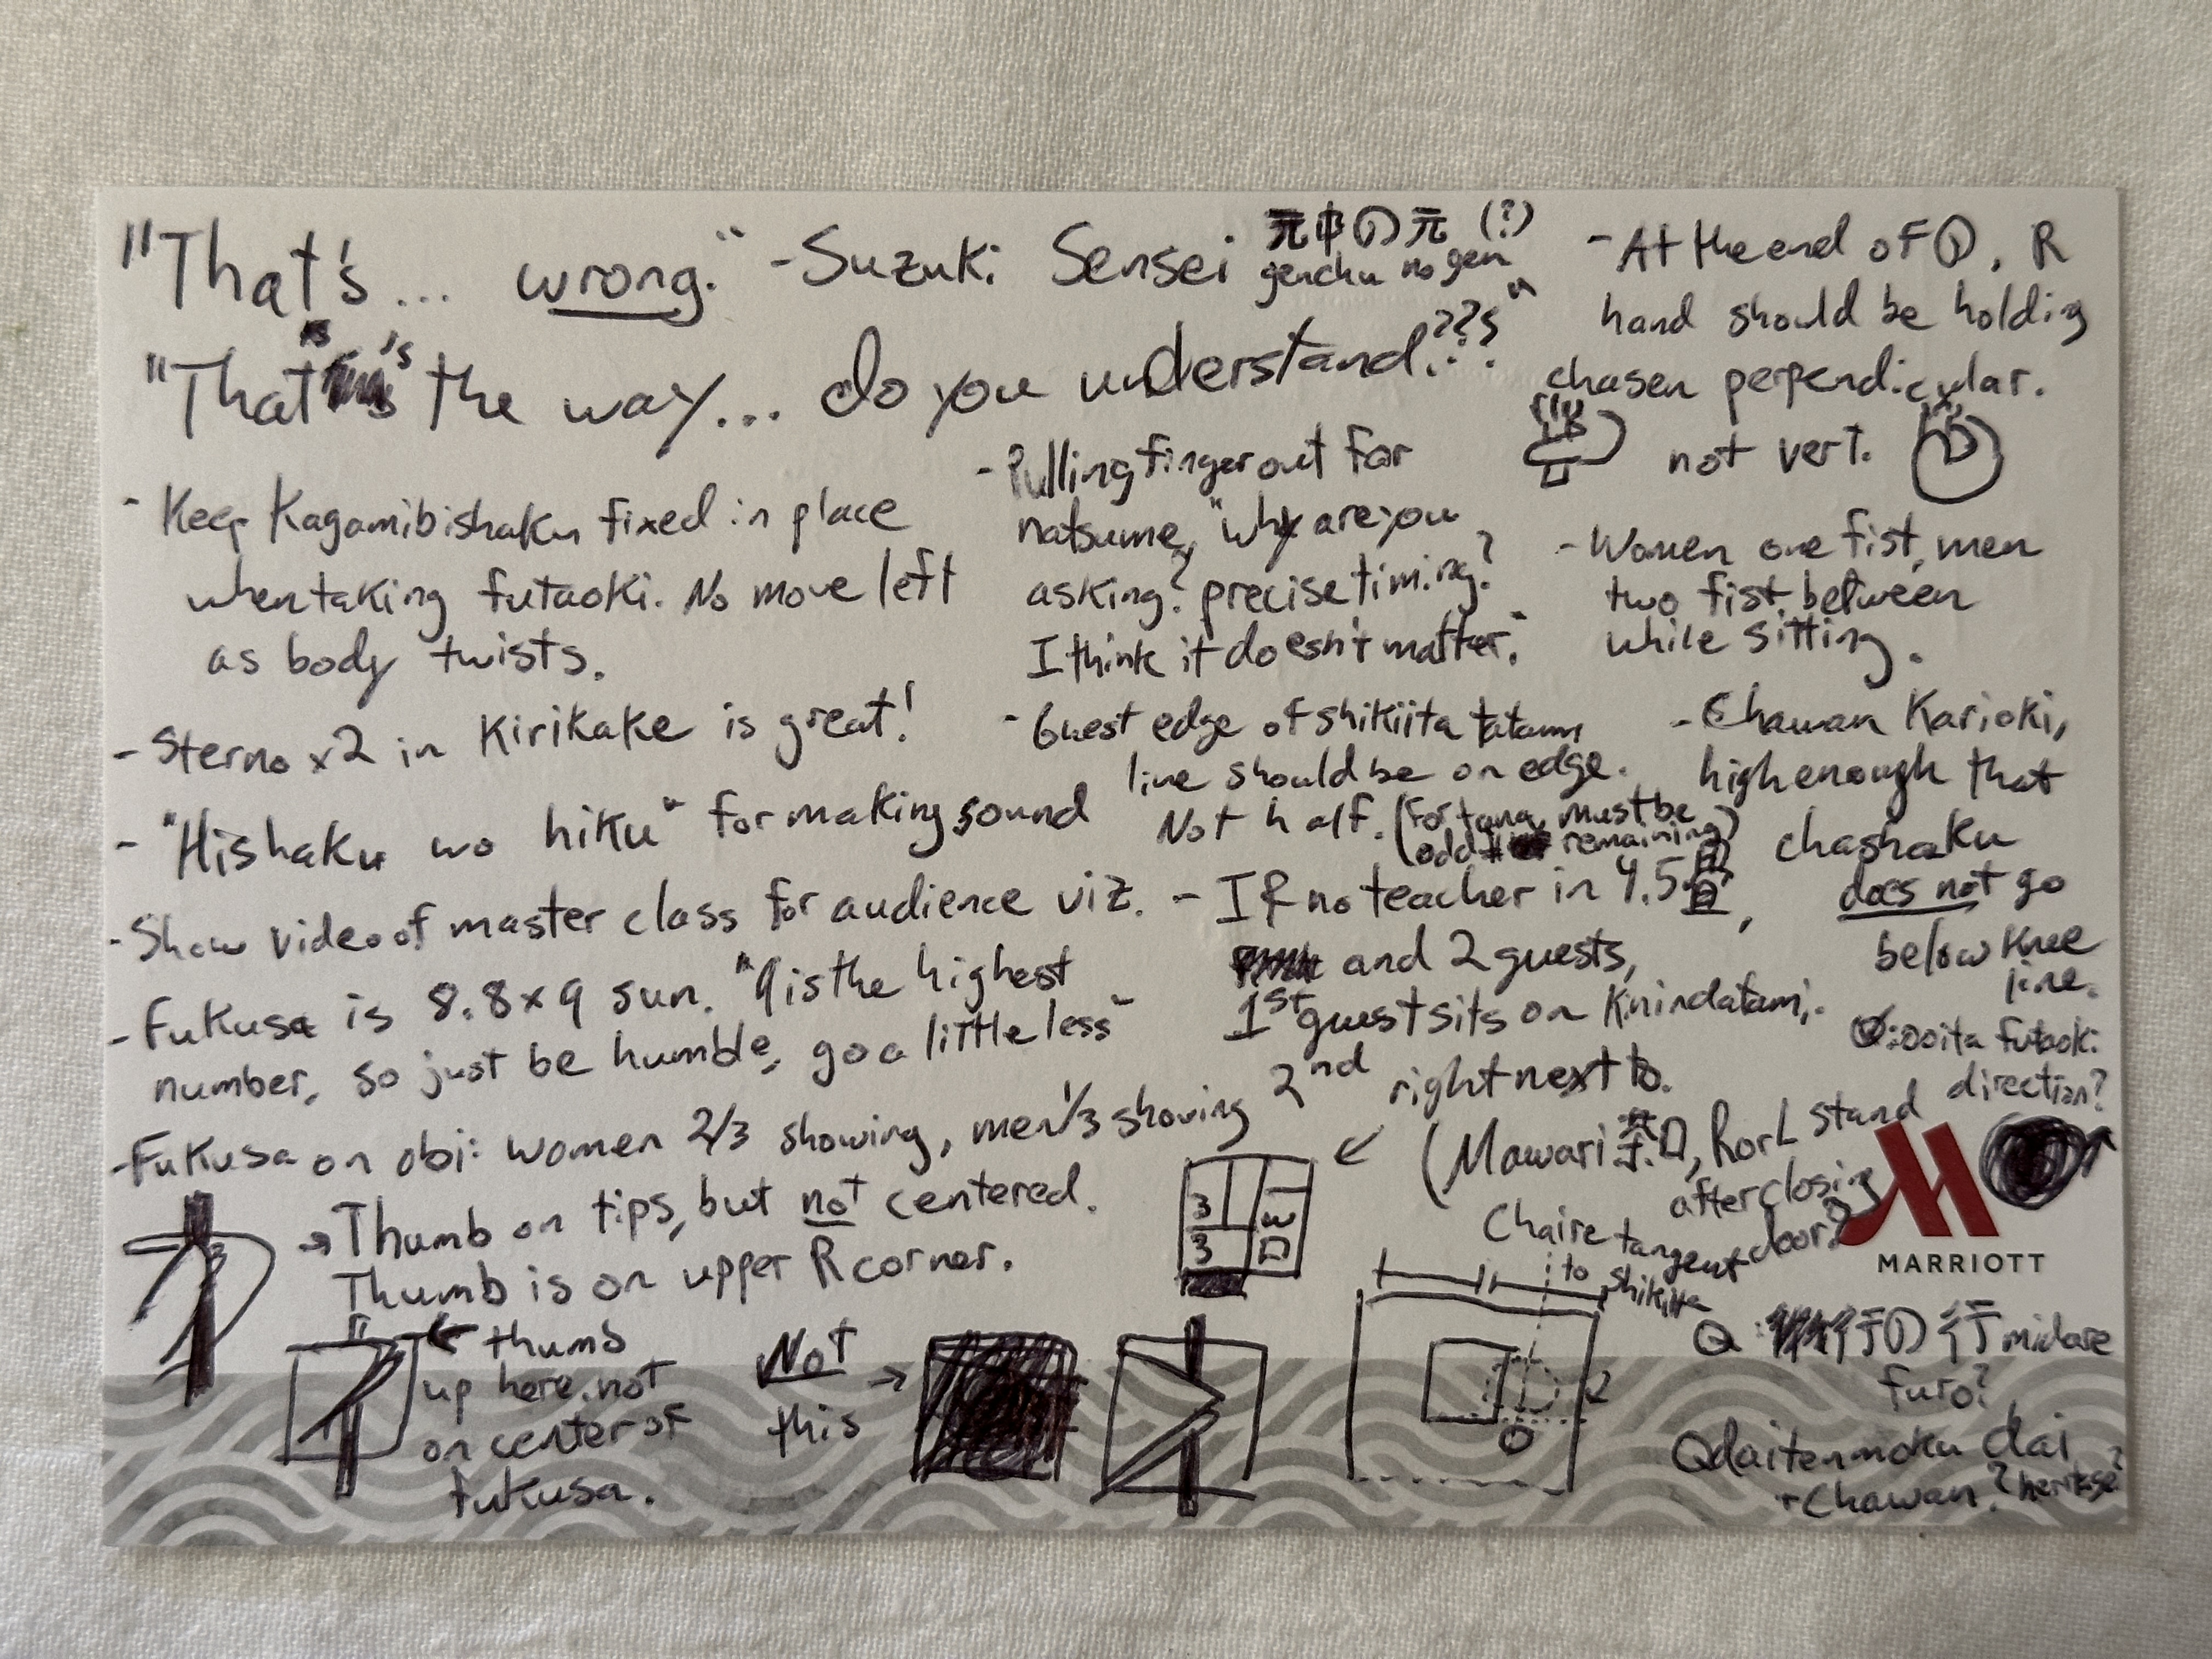 "That's... wrong." - Suzuki Sensei 元中の元 (?)
genchu no gen
"That's the way... do you understand???"
- Keep Kagamibishaku fixed in place
when taking futaoki. No move left
as body twists.
- Sterno x2 in Kirikake is great!
- "Hishaku wo hiku" for making sound
- Show video of master class for audience viz.
- Fukusa is 8.8 x 9 sun. "9 is the highest
number, so just be humble, go a little less"
- Fukusa on obi: women 2/3 showing, men 1/3 showing
→ Thumb on tips, but not centered.
Thumb is on upper R corner.
← thumb
up here, not
on center of
fukusa.
Not
this →
- Pulling finger out for
natsume, "why are you
asking? precise timing?
I think it doesn't matter."
- Guest edge of shikiita tatami
line should be on edge.
Not half. (For tana, must be
odd # remaining)
- If no teacher in 4.5畳,
and 2 guests,
1st guest sits on Knindatami,
2nd right next to.
← (Mawari 茶口, R or L stand
after closing
door?
3
3
Chaire tangent
to shikiita
- At the end of の, R
hand should be holding
chasen perpendicular.
not vert.
- Women one fist, men
two fist between
while sitting.
- Chawan Karioki,
high enough that
chashaku
does not go
below knee
line.
Q: ooita futaoki
direction?
MARRIOTT
Q: 行の行 midare
furo?
Q daitenmoku dai
+ Chawan? heritage?